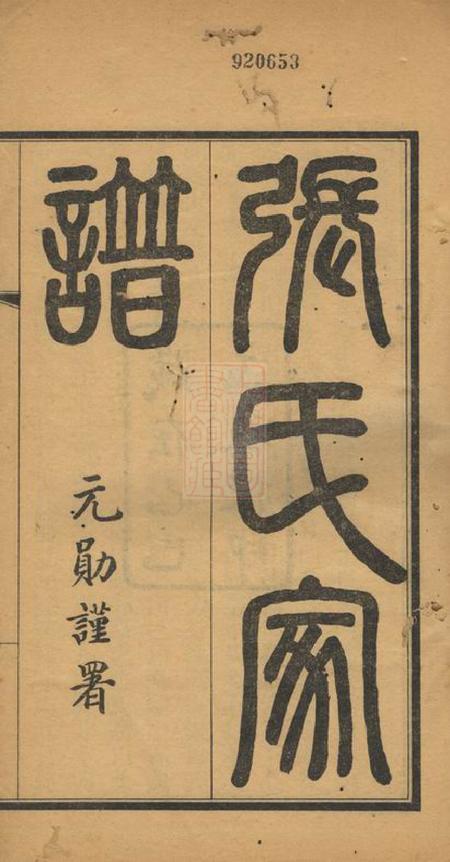 920653
張氏家
譜
元勛謹署